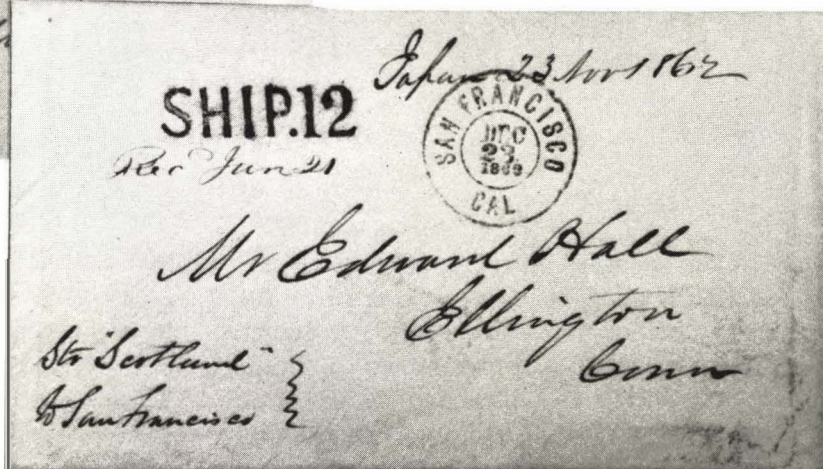 Japan 23 Nov 1862
SHIP.12
SAN FRANCISCO
DEC
23
CAL
Rec Jan 21
Mr Edward Hall
Ellington
Conn
Str "Scotland"
to San Francisco